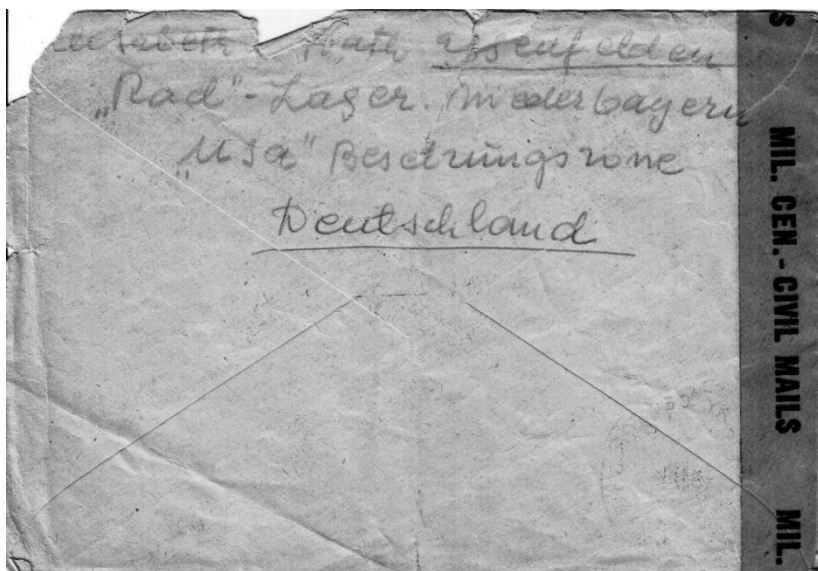 lisabeth Eggenfelden
„Rad"-Lager. Niederbayern
„Usa" Besetzungszone
Deutschland
S MIL. CEN.-CIVIL MAILS MIL.